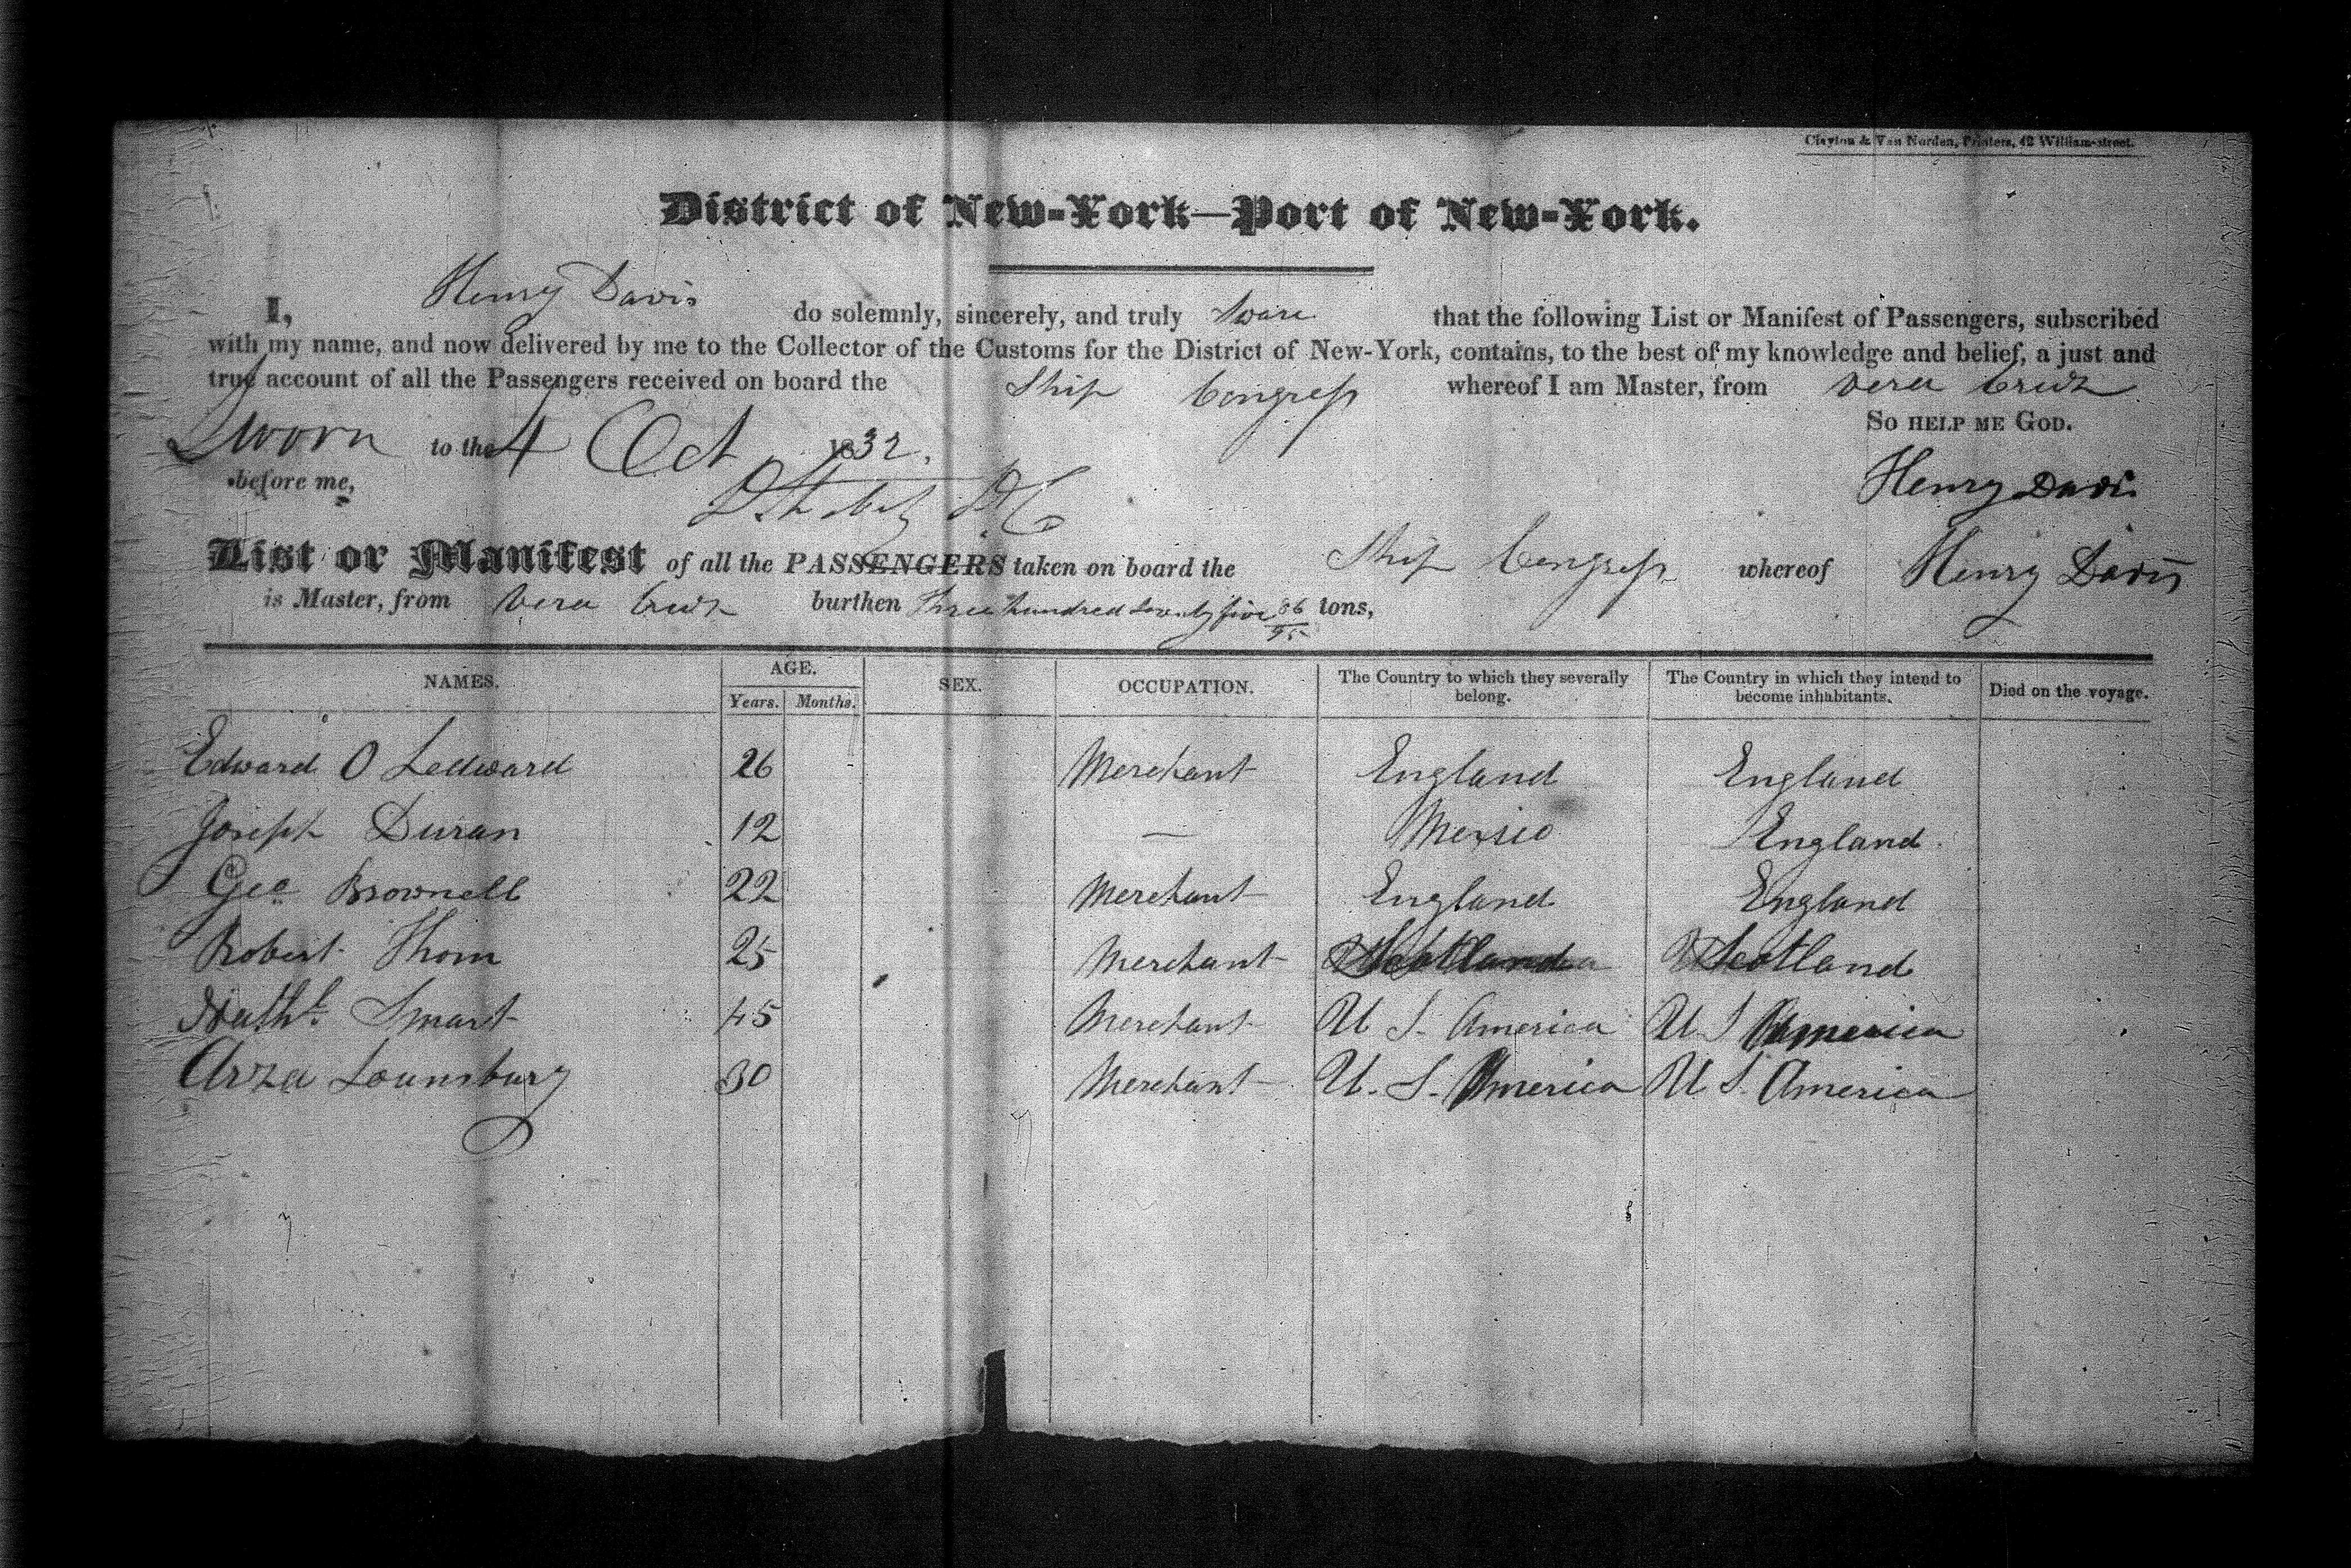 Clayton & Van Norden, Printers, 42 William-street.
District of New-York—Port of New-York.
I, Henry Davis do solemnly, sincerely, and truly Sware that the following List or Manifest of Passengers, subscribed
with my name, and now delivered by me to the Collector of the Customs for the District of New-York, contains, to the best of my knowledge and belief, a just and
true account of all the Passengers received on board the Ship Congress whereof I am Master, from Vera Cruz
So help me God.
Sworn to the 4 Oct 1832.
before me,
Henry Davis
List or Manifest of all the PASSENGERS taken on board the Ship Congress whereof Henry Davis
is Master, from Vera Cruz burthen Three hundred seventy five 86/95 tons,
NAMES. AGE. SEX. OCCUPATION. The Country to which they severally belong. The Country in which they intend to become inhabitants. Died on the voyage.
Years. Months.
Edward O Ledward 26 Merchant England England
Joseph Duran 12 — Mexico England
Geo Brownell 22 Merchant England England
Robert Thom 25 Merchant Scotland Scotland
Nathl. Smart 45 Merchant U S. America U S America
Arza Lounsbury 30 Merchant U. S. America U S. America